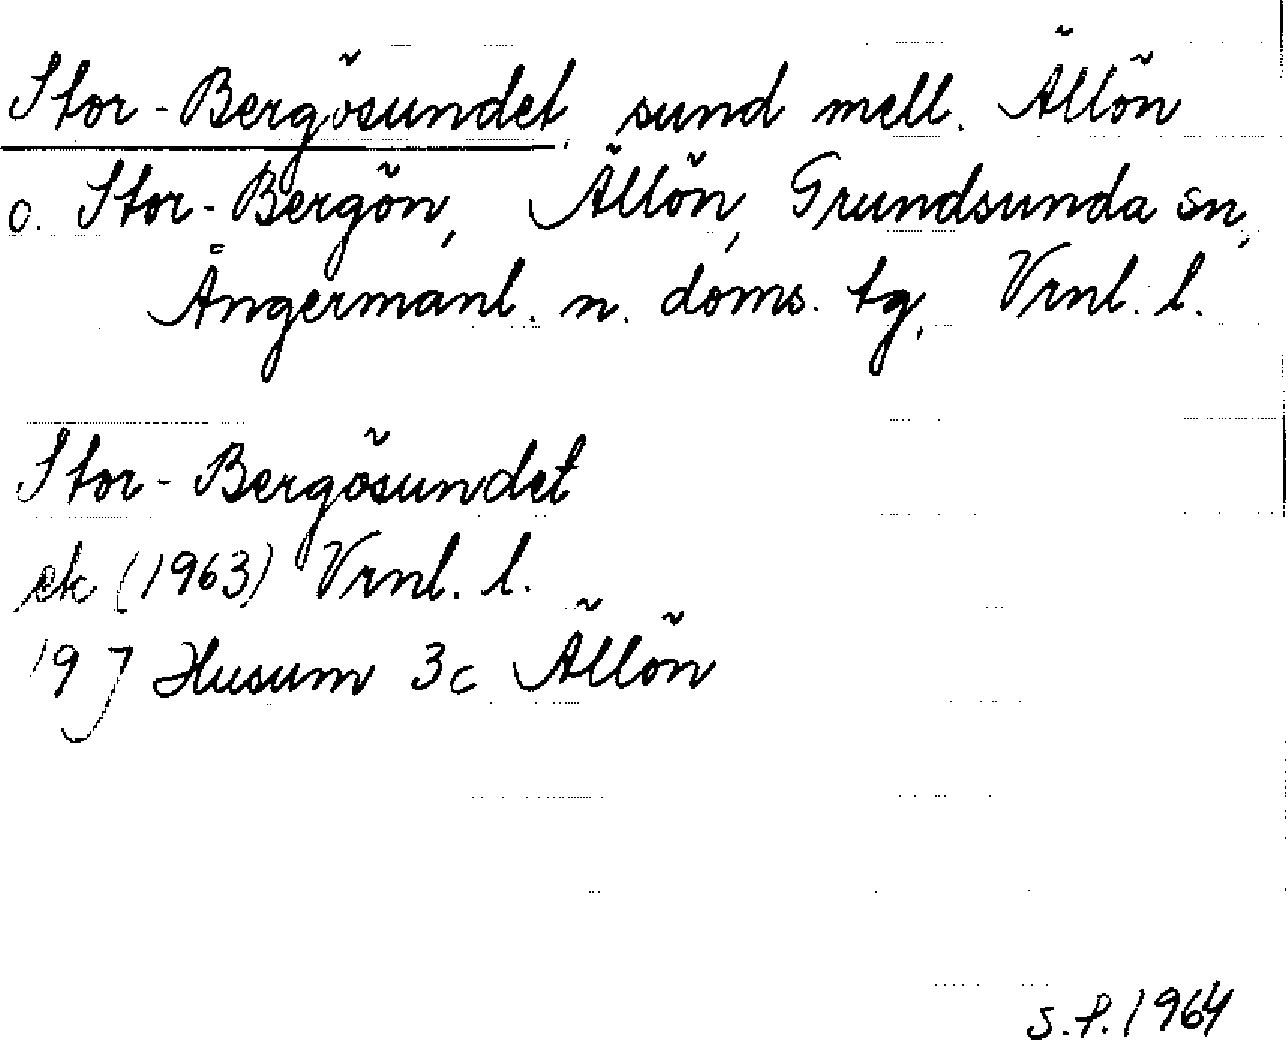 Stor-Bergösundet, sund mell. Ällön
o. Stor-Bergön, Ällön, Grundsunda sn,
Ångermanl. n. doms. tg, Vrnl. l.
Stor-Bergösundet
ek (1963) Vrnl. l.
19 J Husum 3c Ällön
S.P. 1964